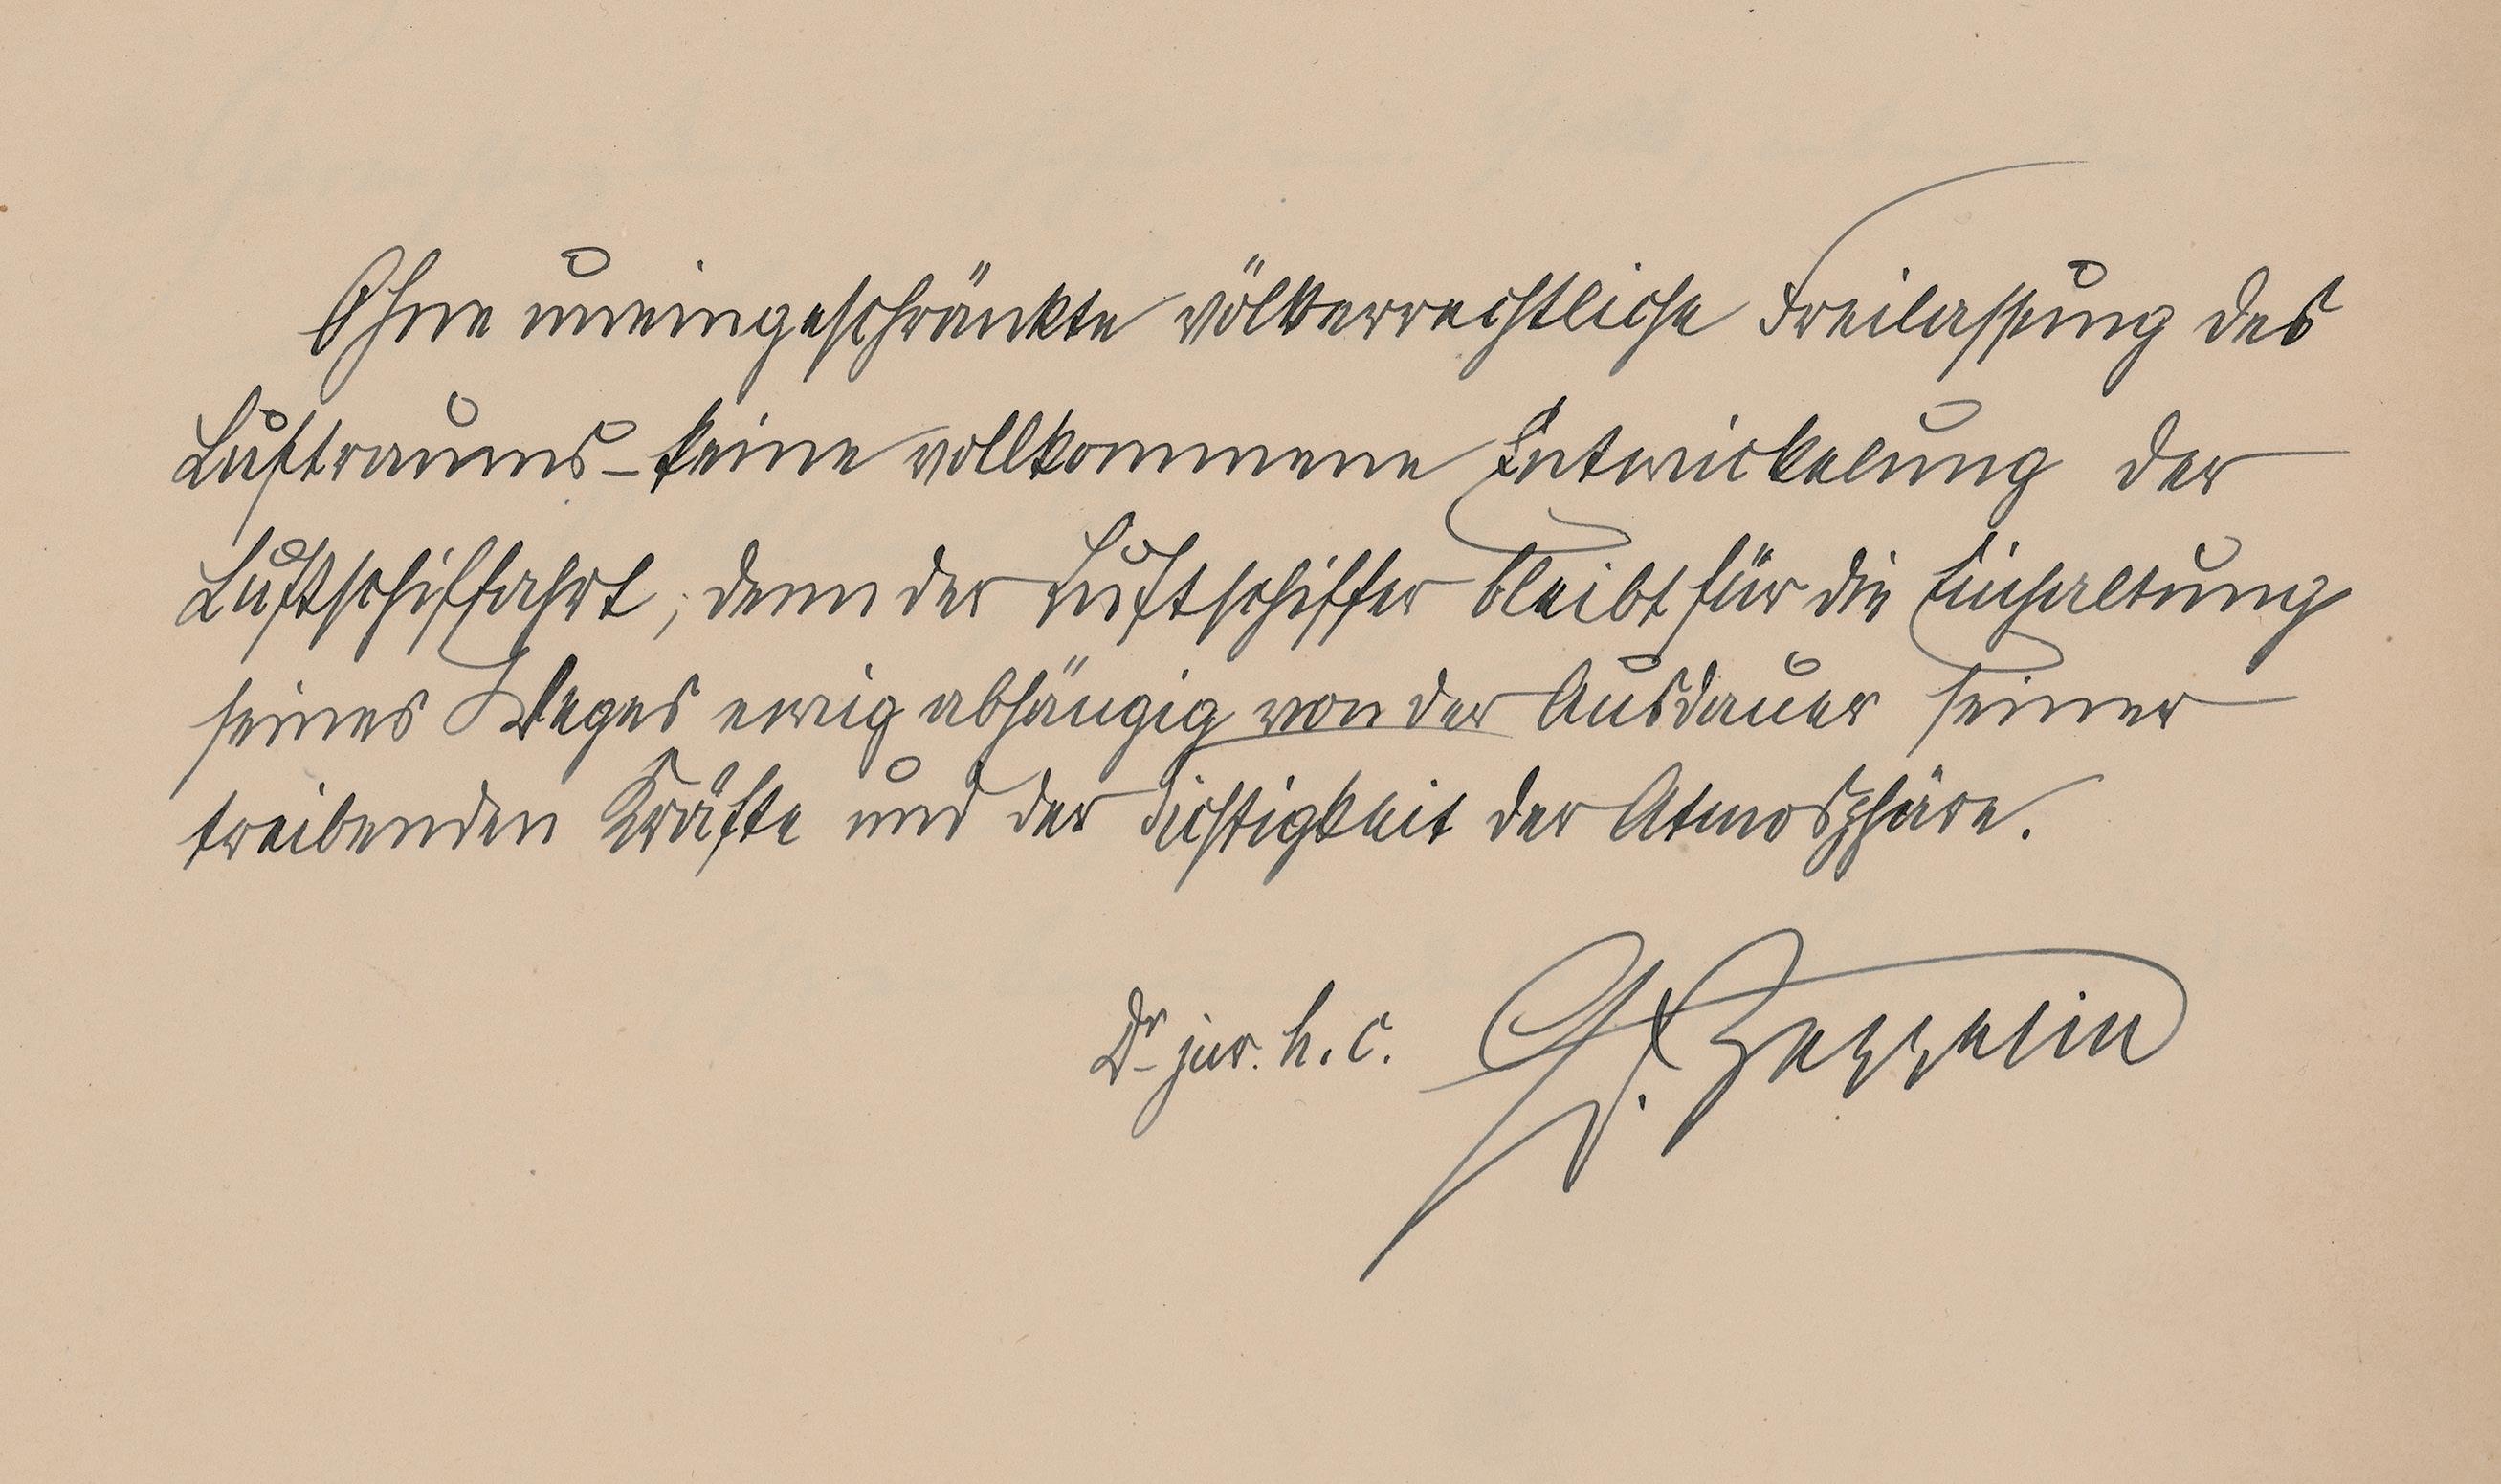 Ohne uneingeschränkte völkerrechtliche Freilassung des
Luftraums – keine vollkommene Entwickelung der
Luftschiffahrt, denn der Luftschiffer bleibt für die Einhaltung
seines Weges ewig abhängig von der Ausdauer seiner
treibenden Kräfte und der Sichtigkeit der Atmosphäre.
Dr jur. h. c. Gf. Zeppelin